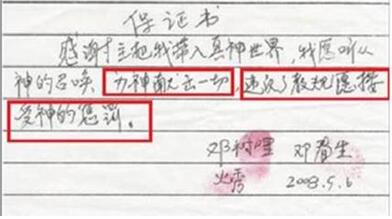 保证书
感谢主把我带入真神世界，我愿听从
神的召唤 为神献出一切，违反了教规愿接
受神的惩罚。
邓树 邓 生
秀 2008.5.6